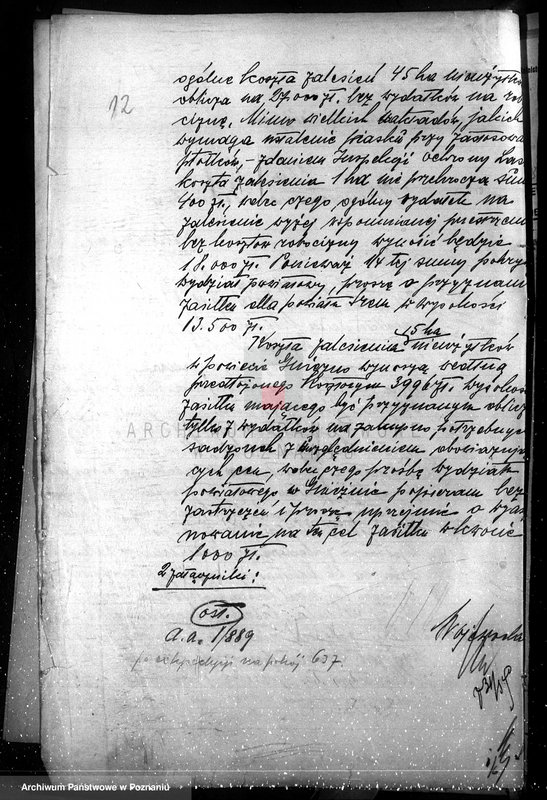 12
ogólne koszta zalesień 45 ha nieużytków
oblicza na 27.000 zł. bez wydatków na robo
ciznę. Mimo wielkich nakładów, jakich
wymaga ustalenie piasku przy zastosowa
płotków, - zdaniem Inspekcji Ochrony Las
koszta zalesienia 1 ha nie przekroczą sum
400 zł., wobec czego ogólny wydatek na
zalesienie wyżej wspomnianej przestrzeni
bez kosztów robocizny wynosić będzie
18.000 zł. Ponieważ 1/4 tej sumy pokryje
wydział powiatowy, proszę o przyznanie
zasiłku dla powiatu Śrem w wysokości
13.500 zł.
Koszta zalesienia 15 ha nieużytków
w powiecie Gniezno wynoszą według
przedłożonego kosztorysu 3996 zł. wysokość
zasiłku mającego być przyznanym oblicz
tylko z wydatków na zakupno potrzebnych
sadzonek z uwzględnieniem obowiązują
cych cen, wobec czego prośbę wydziału
powiatowego w Gnieźnie popieram bez
zastrzeżeń i proszę uprzejmie o wyas
nowanie na ten cel zasiłku w kwocie
1000 zł.
2 załączniki:
ost.
a.a. 1/889
po ekspedycji na pokój 637
Wojewoda
ARCHIWUM
Archiwum Państwowe w Poznaniu